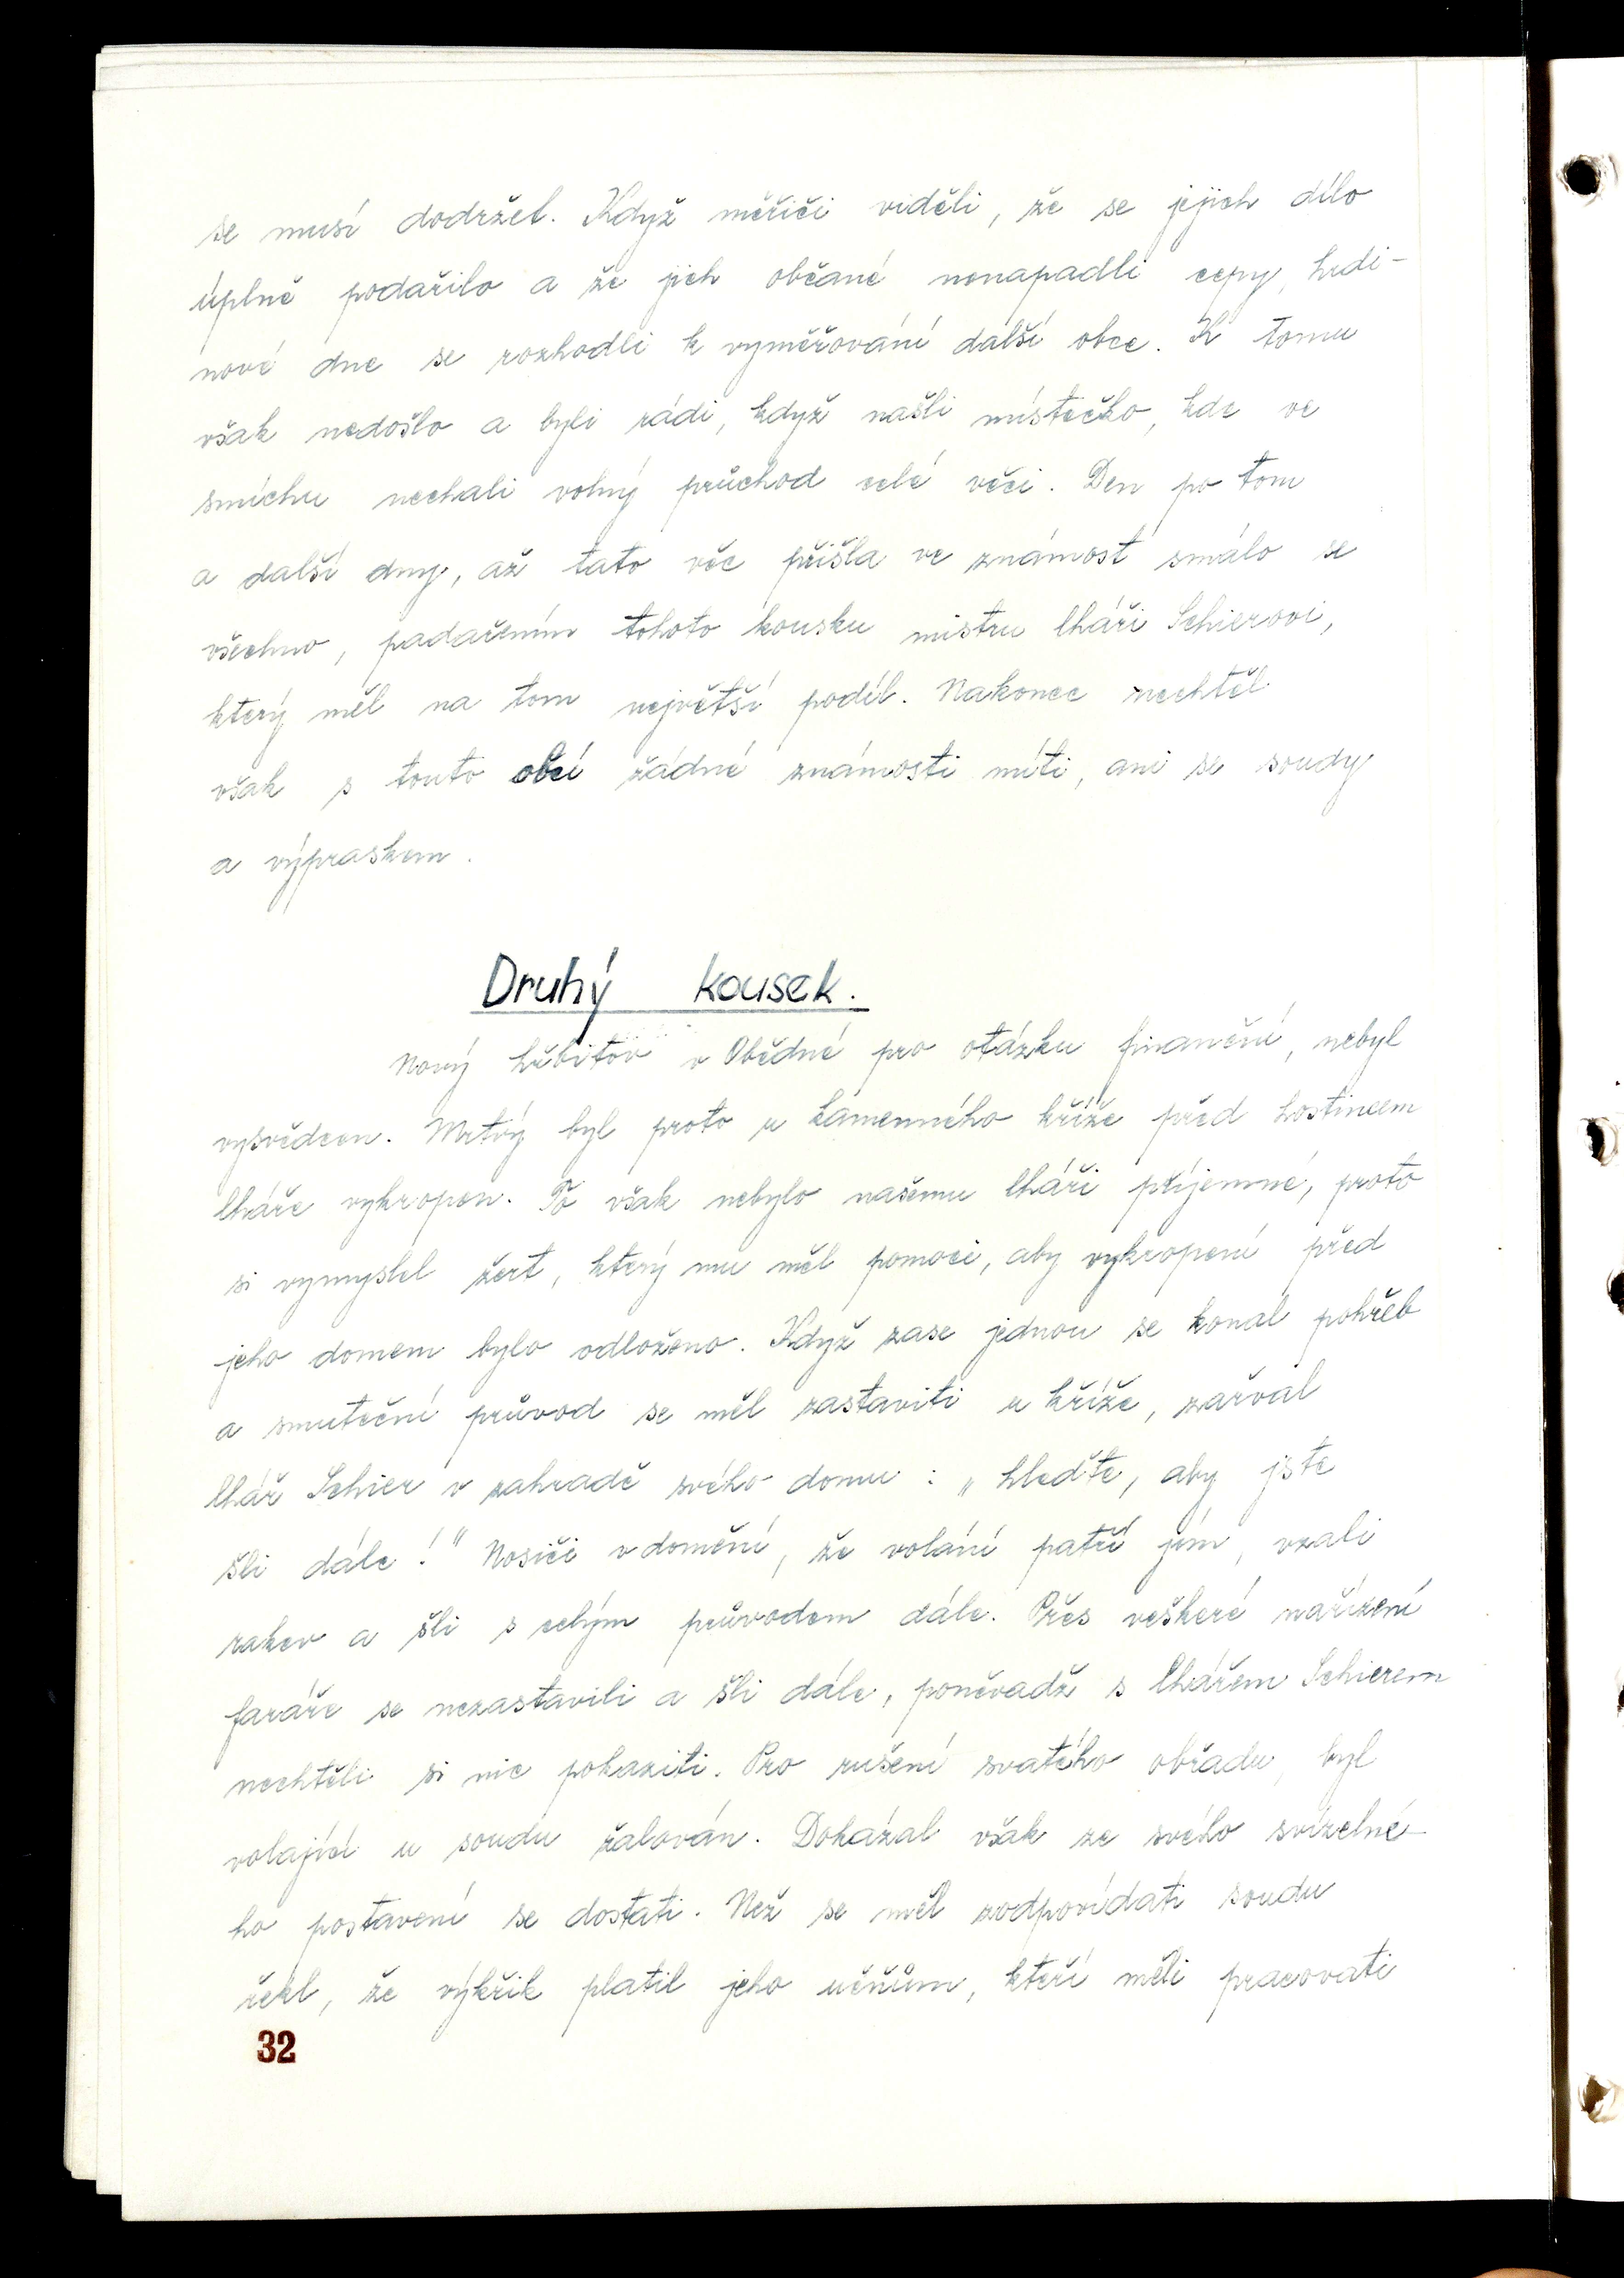 se musí dodržel. Když měřiči viděli, že se jejich dílo
úplně podařilo a že jich občané nenapadli cepy, hrdi-
nové dne se rozhodli k vyměřování další obce. K tomu
však nedošlo a byli rádi, když našli místečko, kde ve
smíchu nechali volný průchod celé věci. Den po tom
a další dny, až tato věc přišla ve známost smálo se
všechno, padařením tohoto kousku mistru lháři Schierovi,
který měl na tom největší podíl. Nakonec nechtěl
však s touto obcí žádné známosti míti, ani se soudy
a výpraskem.
Druhý kousek.
Nový hřbitov v Obědné pro otázku finanční, nebyl
vysvědcen. Mrtvý byl proto u kamenného kříže před hostincem
lháře vykropen. To však nebylo našemu lháři příjemné, proto
si vymyslel žert, který mu měl pomoci, aby vykropení před
jeho domem bylo odloženo. Když zase jednou se konal pohřeb
a smuteční průvod se měl zastaviti u kříže, zařval
lhář Schier v zahradě svého domu : „hleďte, aby jste
šli dále !" Nosiči v domění, že volání patří jim, vzali
rakev a šli s celým průvodem dále. Přes veškeré nařízení
faráře se nezastavili a šli dále, poněvadž s lhářem Schierem
nechtěli si nic pokaziti. Pro rušení svatého obřadu, byl
volající u soudu žalován. Dokázal však ze svého svízelné-
ho postavení se dostati. Než se měl zodpovídati soudu
řekl, že výkřik platil jeho učňům, kteří měli pracovati
32